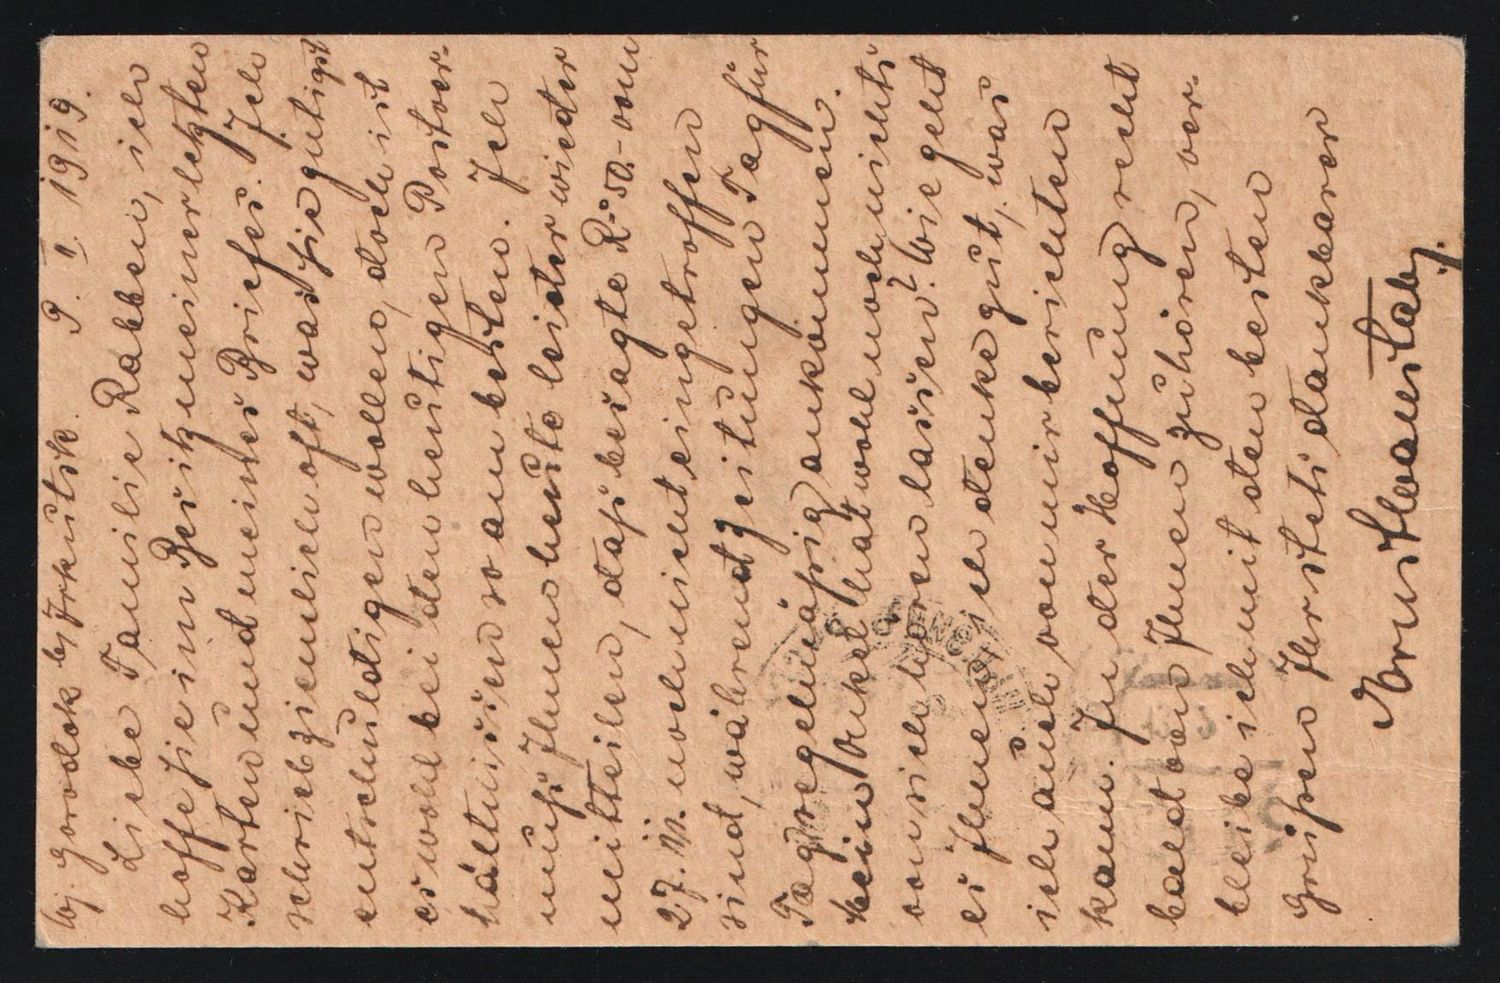 W. Gorodok b/ Irkutsk. 9. I. 1919.
Liebe Familie Rabben, ich
hoffe Sie im Besitz meiner letzten
Karten und meines Briefes. Ich
schrieb ziemlich oft, was Sie gütigst
entschuldigen wollen, doch ist
es wohl bei den heutigen Postver-
hältnissen so am besten. Ich
muß Ihnen heute leider wieder
mitteilen, daß besagte R. 50.- vom
27. noch nicht eingetroffen
sind, während Zeitungen Tag für
Tag regelmäßig ankommen.
Mein Onkel hat wohl noch nichts
von sich hören lassen? Wie geht
es Ihnen; ich denke gut, was
ich auch von mir berichten
kann. In der Hoffnung recht
bald von Ihnen zu hören, ver-
bleibe ich mit den besten
Grüßen Ihr stets dankbarer
Ernst